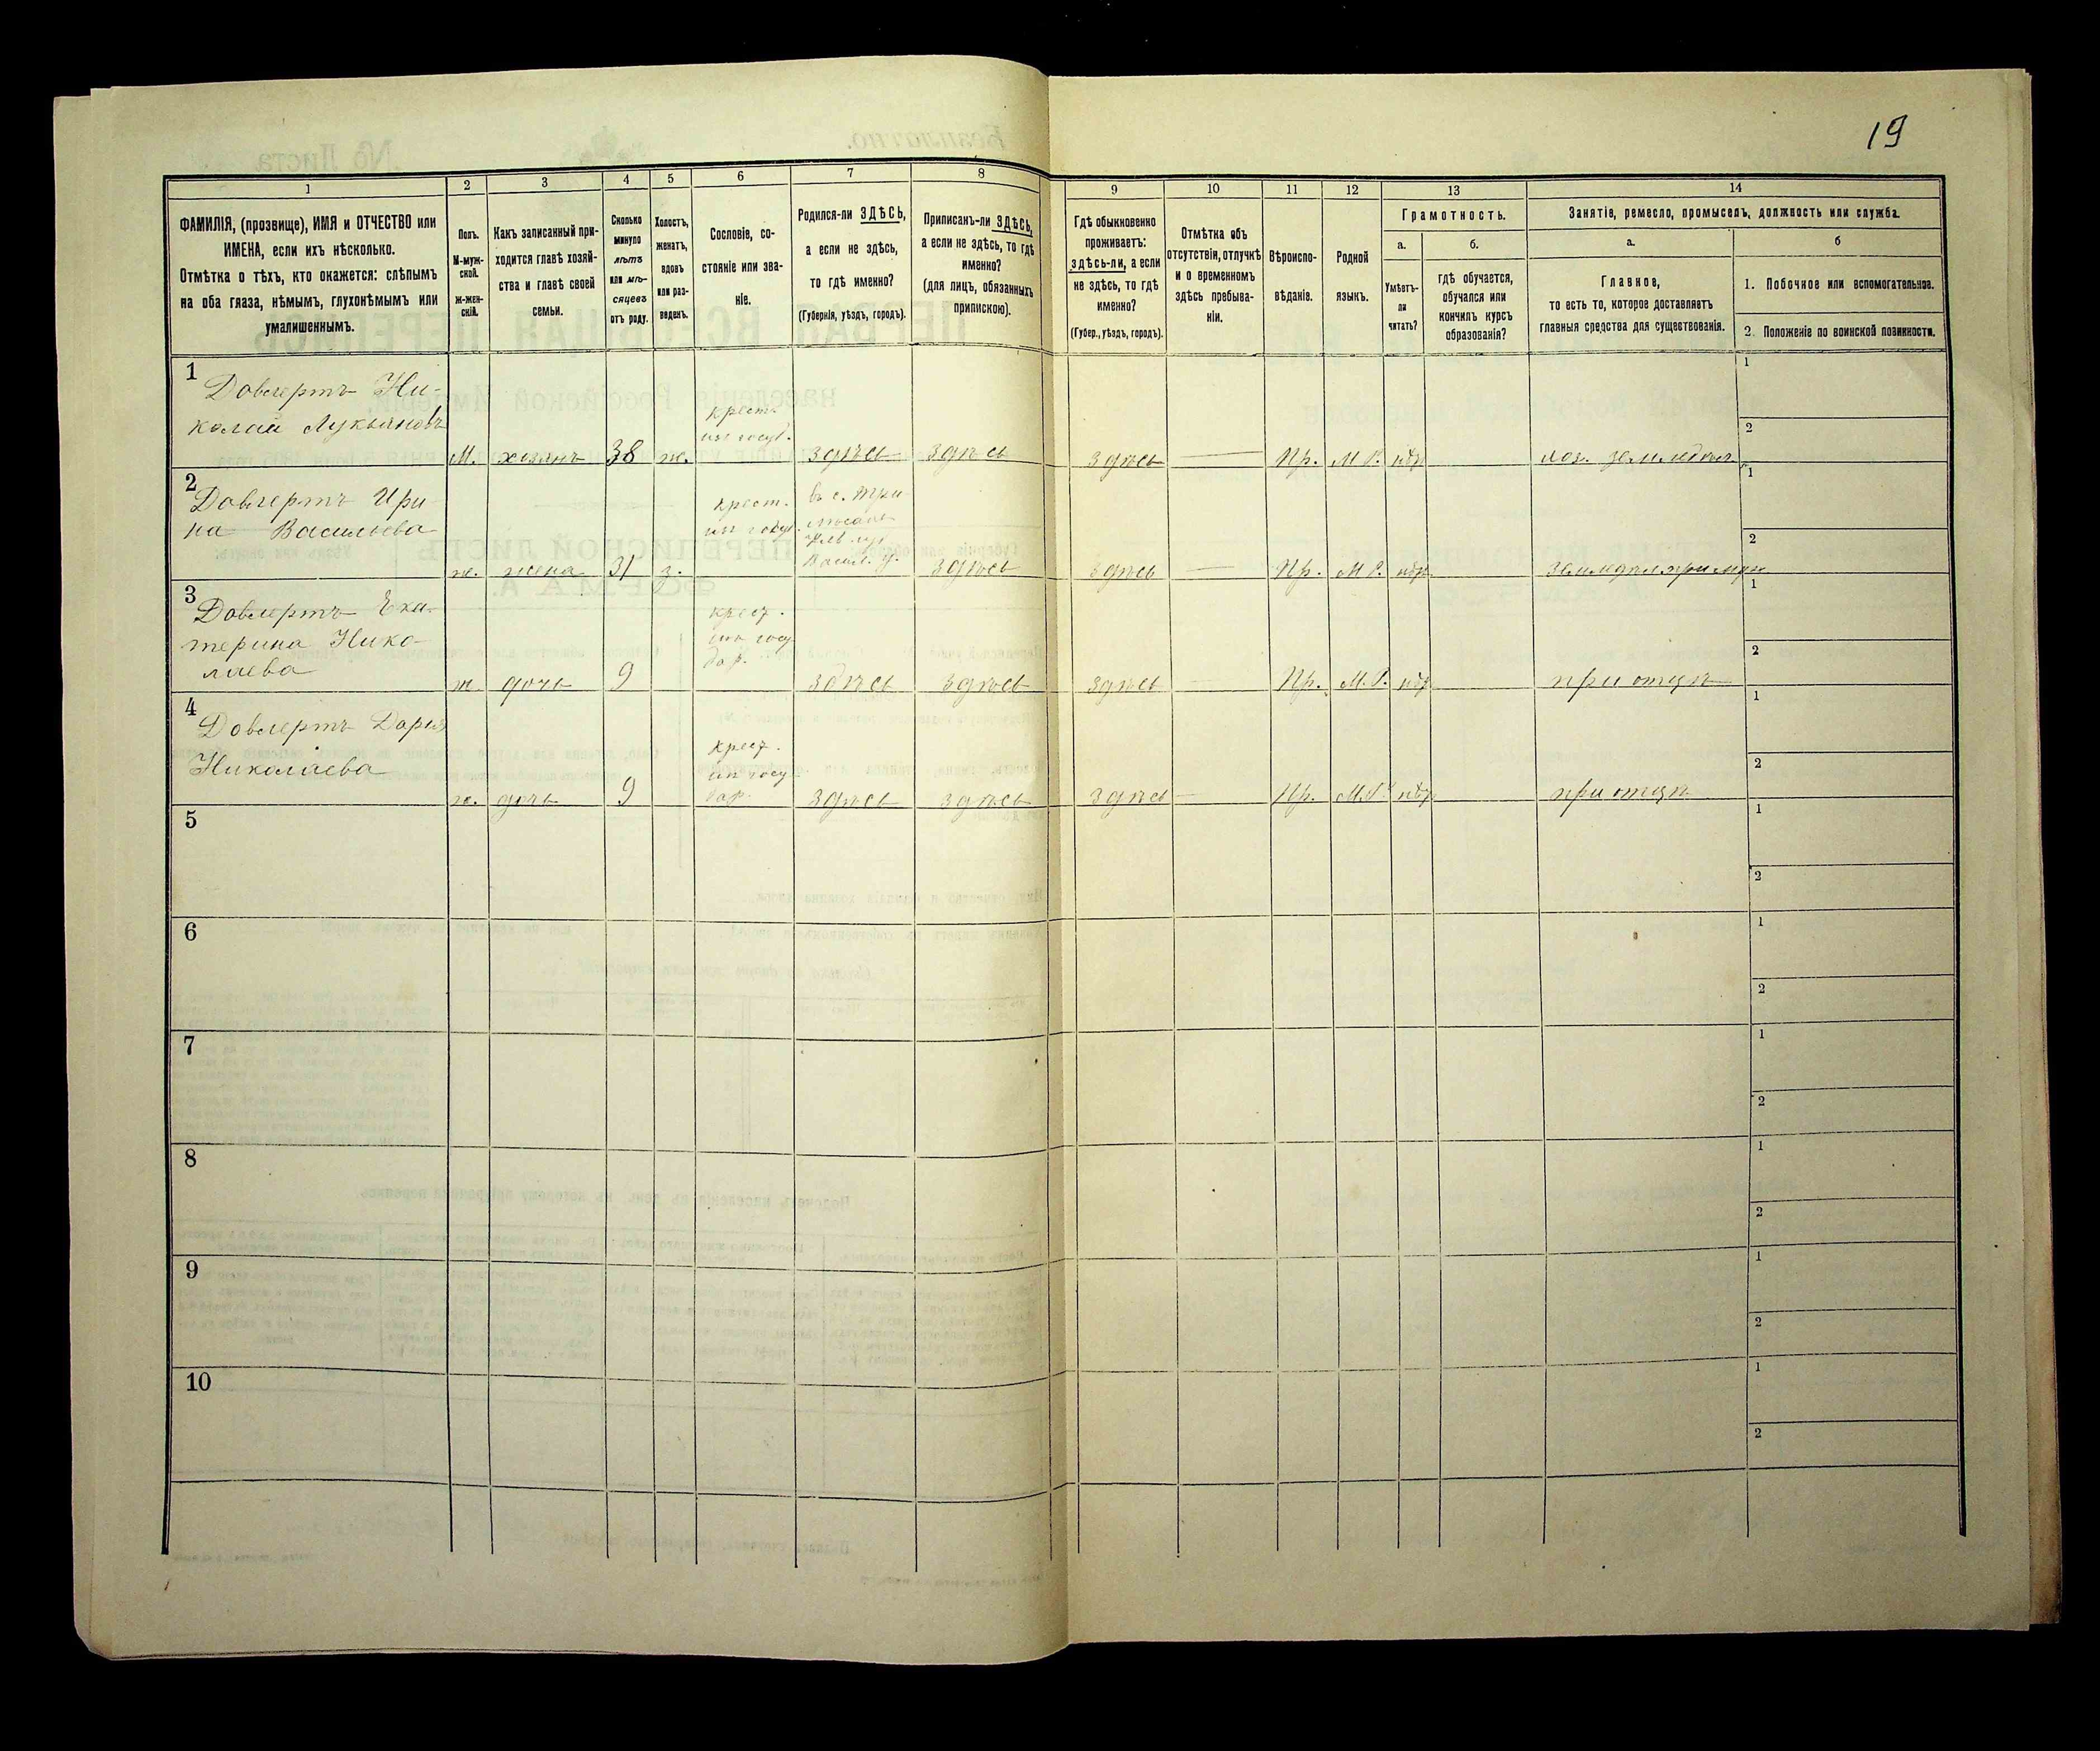 19
1 2 3 4 5 6 7 8 9 10 11 12 13 14
ФАМИЛІЯ, (прозвище), ИМЯ и ОТЧЕСТВО или
ИМЕНА, если ихъ нѣсколько.
Отмѣтка о тѣхъ, кто окажется: слѣпымъ
на оба глаза, нѣмымъ, глухонѣмымъ или
умалишеннымъ.
Полъ.
М-муж-
ской.
Ж-жен-
скій.
Какъ записанный при-
ходится главѣ хозяй-
ства и главѣ своей
семьи.
Сколько
минуло
лѣтъ
или мѣ-
сяцевъ
отъ роду.
Холостъ,
женатъ,
вдовъ
или раз-
веденъ.
Сословіе, со-
стояніе или зва-
ніе.
Родился-ли ЗДѢСЬ,
а если не здѣсь,
то гдѣ именно?
(Губернія, уѣздъ, городъ).
Приписанъ-ли ЗДѢСЬ,
а если не здѣсь, то гдѣ
именно?
(для лицъ, обязанныхъ
припискою).
Гдѣ обыкновенно
проживаетъ:
здѣсь-ли, а если
не здѣсь, то гдѣ
именно?
(Губер., уѣздъ, городъ).
Отмѣтка объ
отсутствіи, отлучкѣ
и о временномъ
здѣсь пребыва-
ніи.
Вѣроиспо-
вѣданіе.
Родной
языкъ.
Грамотность.
а.
Умѣетъ-
ли
читать?
б.
гдѣ обучается,
обучался или
кончилъ курсъ
образованія?
Занятіе, ремесло, промыселъ, должность или служба.
а.
Главное,
то есть то, которое доставляетъ
главныя средства для существованія.
б
1. Побочное или вспомогательное.
2. Положеніе по воинской повинности.
1
Довгертъ Ни-
колай Лукьяновъ
М. хозяинъ 38 ж. крест. изъ госуд. здѣсь здѣсь здѣсь Пр. М.Р. нѣт хоз. земледѣл.
1
2
2
Довгертъ Ири
на Васильева
ж. жена 31 з. крест. изъ госуд. въ с. Васил. у. здѣсь здѣсь Пр. М.Р. нѣт земледѣл. при муж
1
2
3
Довгертъ Ека-
терина Нико-
лаева
ж. дочь 9 крест. изъ госу дар. здѣсь здѣсь здѣсь Пр. М.Р. нѣт при отцѣ
1
2
4
Довгертъ Дарья
Николаева
ж. дочь 9 крест. изъ госу дар. здѣсь здѣсь здѣсь Пр. М.Р. нѣт при отцѣ
1
2
5
1
2
6
1
2
7
1
2
8
1
2
9
1
2
10
1
2